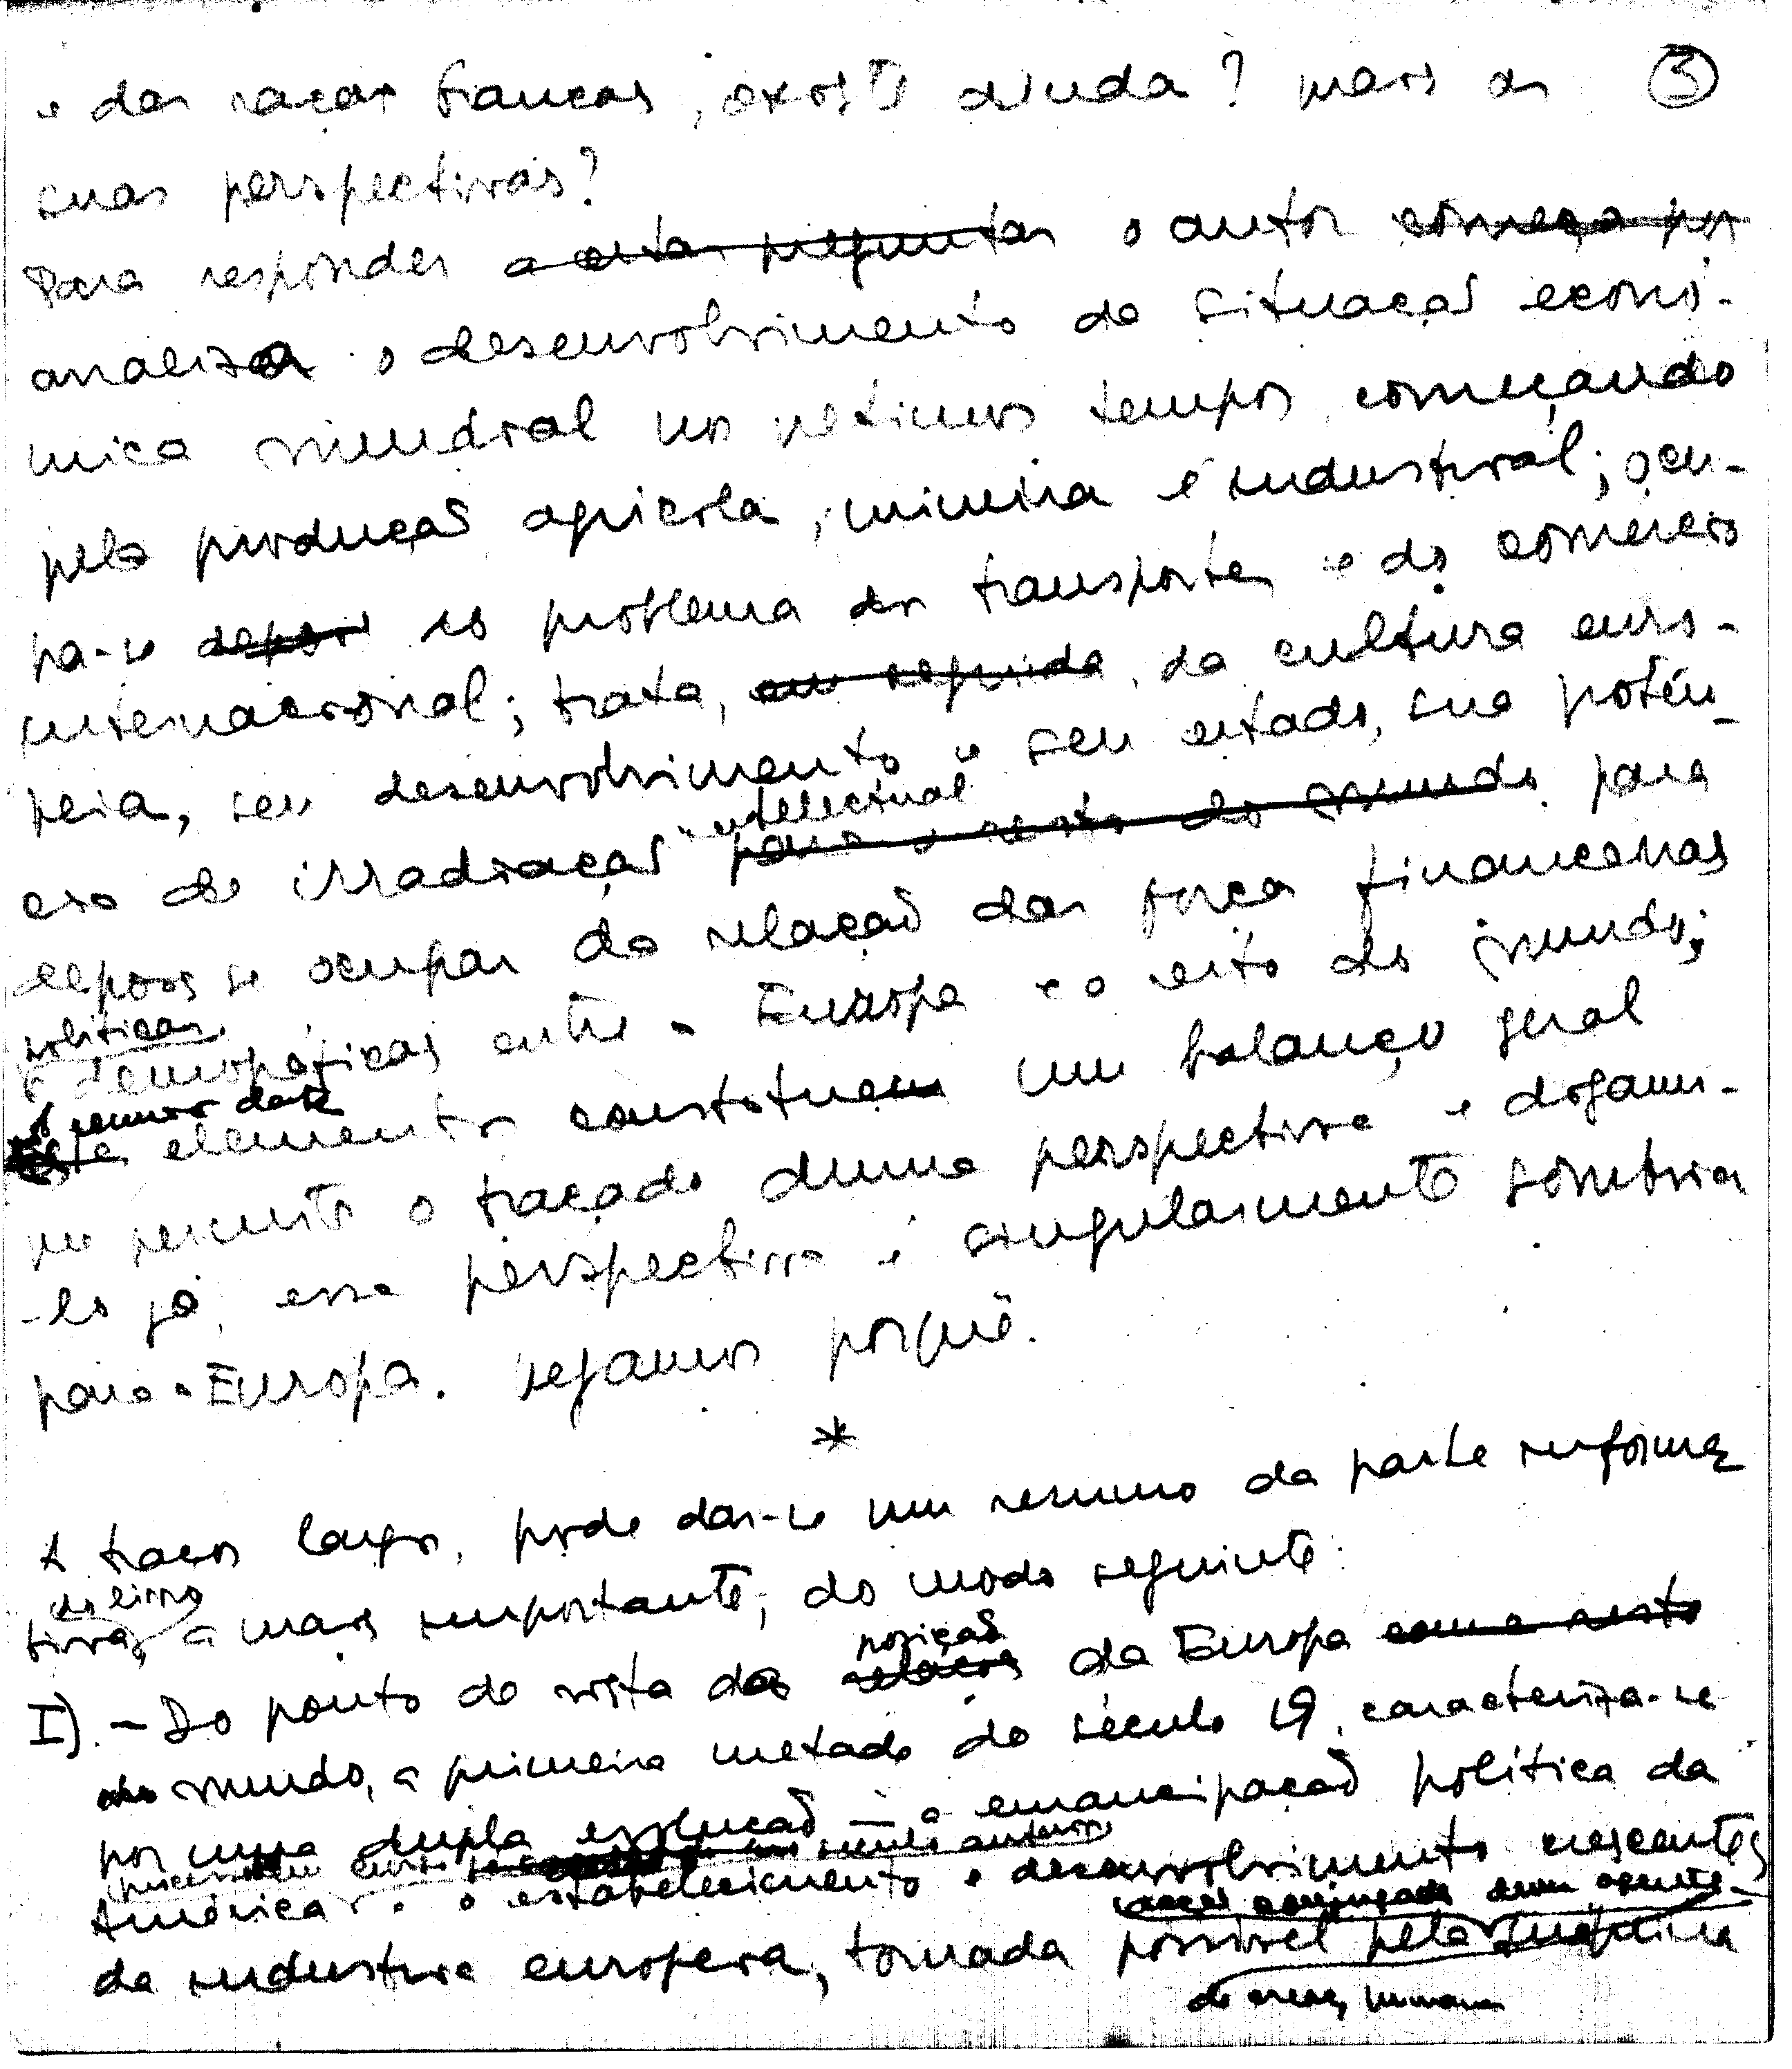 e das raças brancas, existe ainda? mais as 3
suas perspectivas?
Para responder a estas perguntas o autor começa por
analisa o desenvolvimento da situação econó-
mica mundial nos últimos tempos, começando
pela produção agrícola, mineira e industrial; ocu-
pa-se depois do problema dos transportes e do comércio
internacional; trata, em seguida, da cultura euro-
peia, seu desenvolvimento e seu estado, sua potên-
cia de irradiação intelectual para o resto do mundo para
depois se ocupar da relação das forças financeiras
políticas
e demográficas entre a Europa e o resto do mundo;
estes elementos constituem um balanço geral
que permite o traçado duma perspectiva e digamo-
-lo já, essa perspectiva é singularmente sombria
para a Europa. Vejamos porquê.
*
A traços largos, pode dar-se um resumo da parte informa
do livro
tiva, a mais importante, do modo seguinte:
posição
I) - Do ponto de vista da relações da Europa com o resto
do mundo, a primeira metade do século 19, caracteriza-se
por uma dupla evolução — a emancipação política da
América e o estabelecimento e desenvolvimento crescentes
da indústria europeia, tornada possível pela máquina